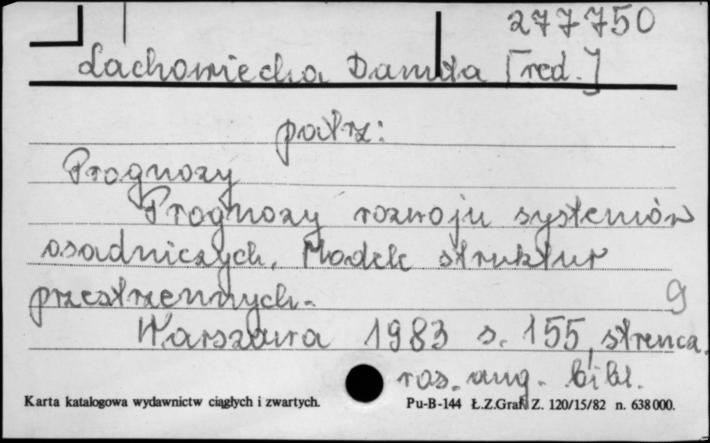 277750
Lachowiecka Danuta [red.]
patrz:
Prognozy
Prognozy rozwoju systemów
osadniczych. Modele struktur
przestrzennych.
9
Warszawa 1983 s. 155, streszcz.
ros. ang. bibl.
Karta katalogowa wydawnictw ciągłych i zwartych.
Pu-B-144 Ł.Z.Graf. Z. 120/15/82 n. 638000.